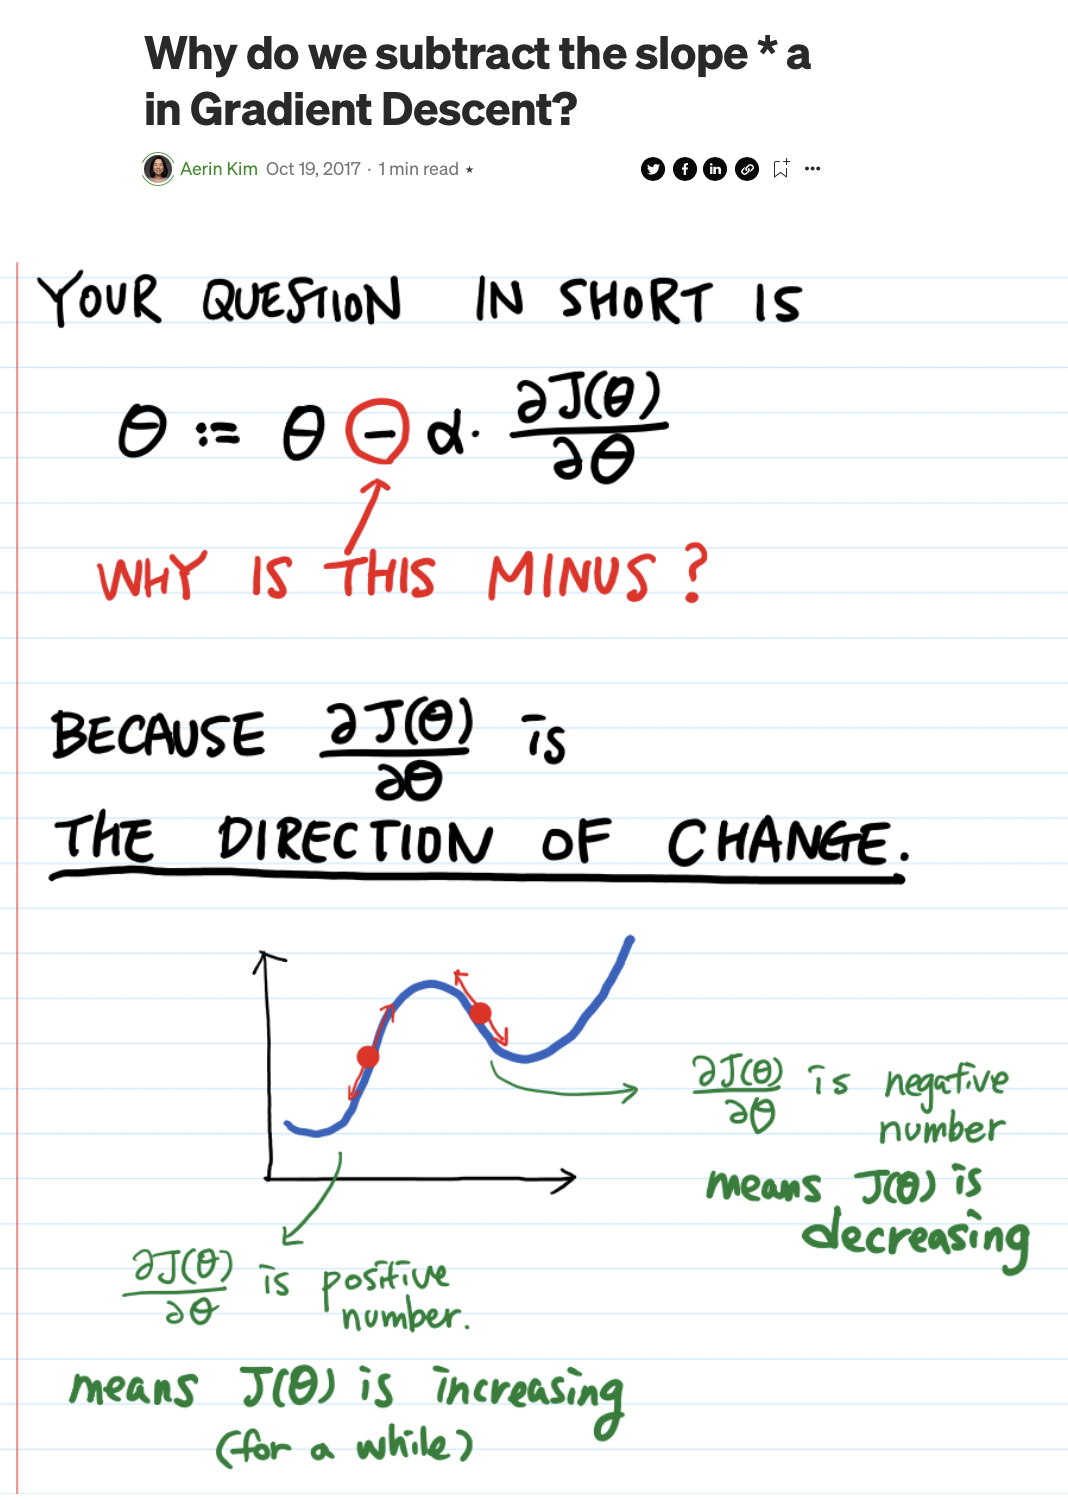 Why do we subtract the slope * a
in Gradient Descent?
Aerin Kim Oct 19, 2017 · 1 min read ★
YOUR QUESTION IN SHORT IS
θ := θ − α · ∂J(θ)/∂θ
WHY IS THIS MINUS?
BECAUSE ∂J(θ)/∂θ is
THE DIRECTION OF CHANGE.
∂J(θ)/∂θ is negative
number
means J(θ) is
decreasing
∂J(θ)/∂θ is positive
number.
means J(θ) is increasing
(for a while)